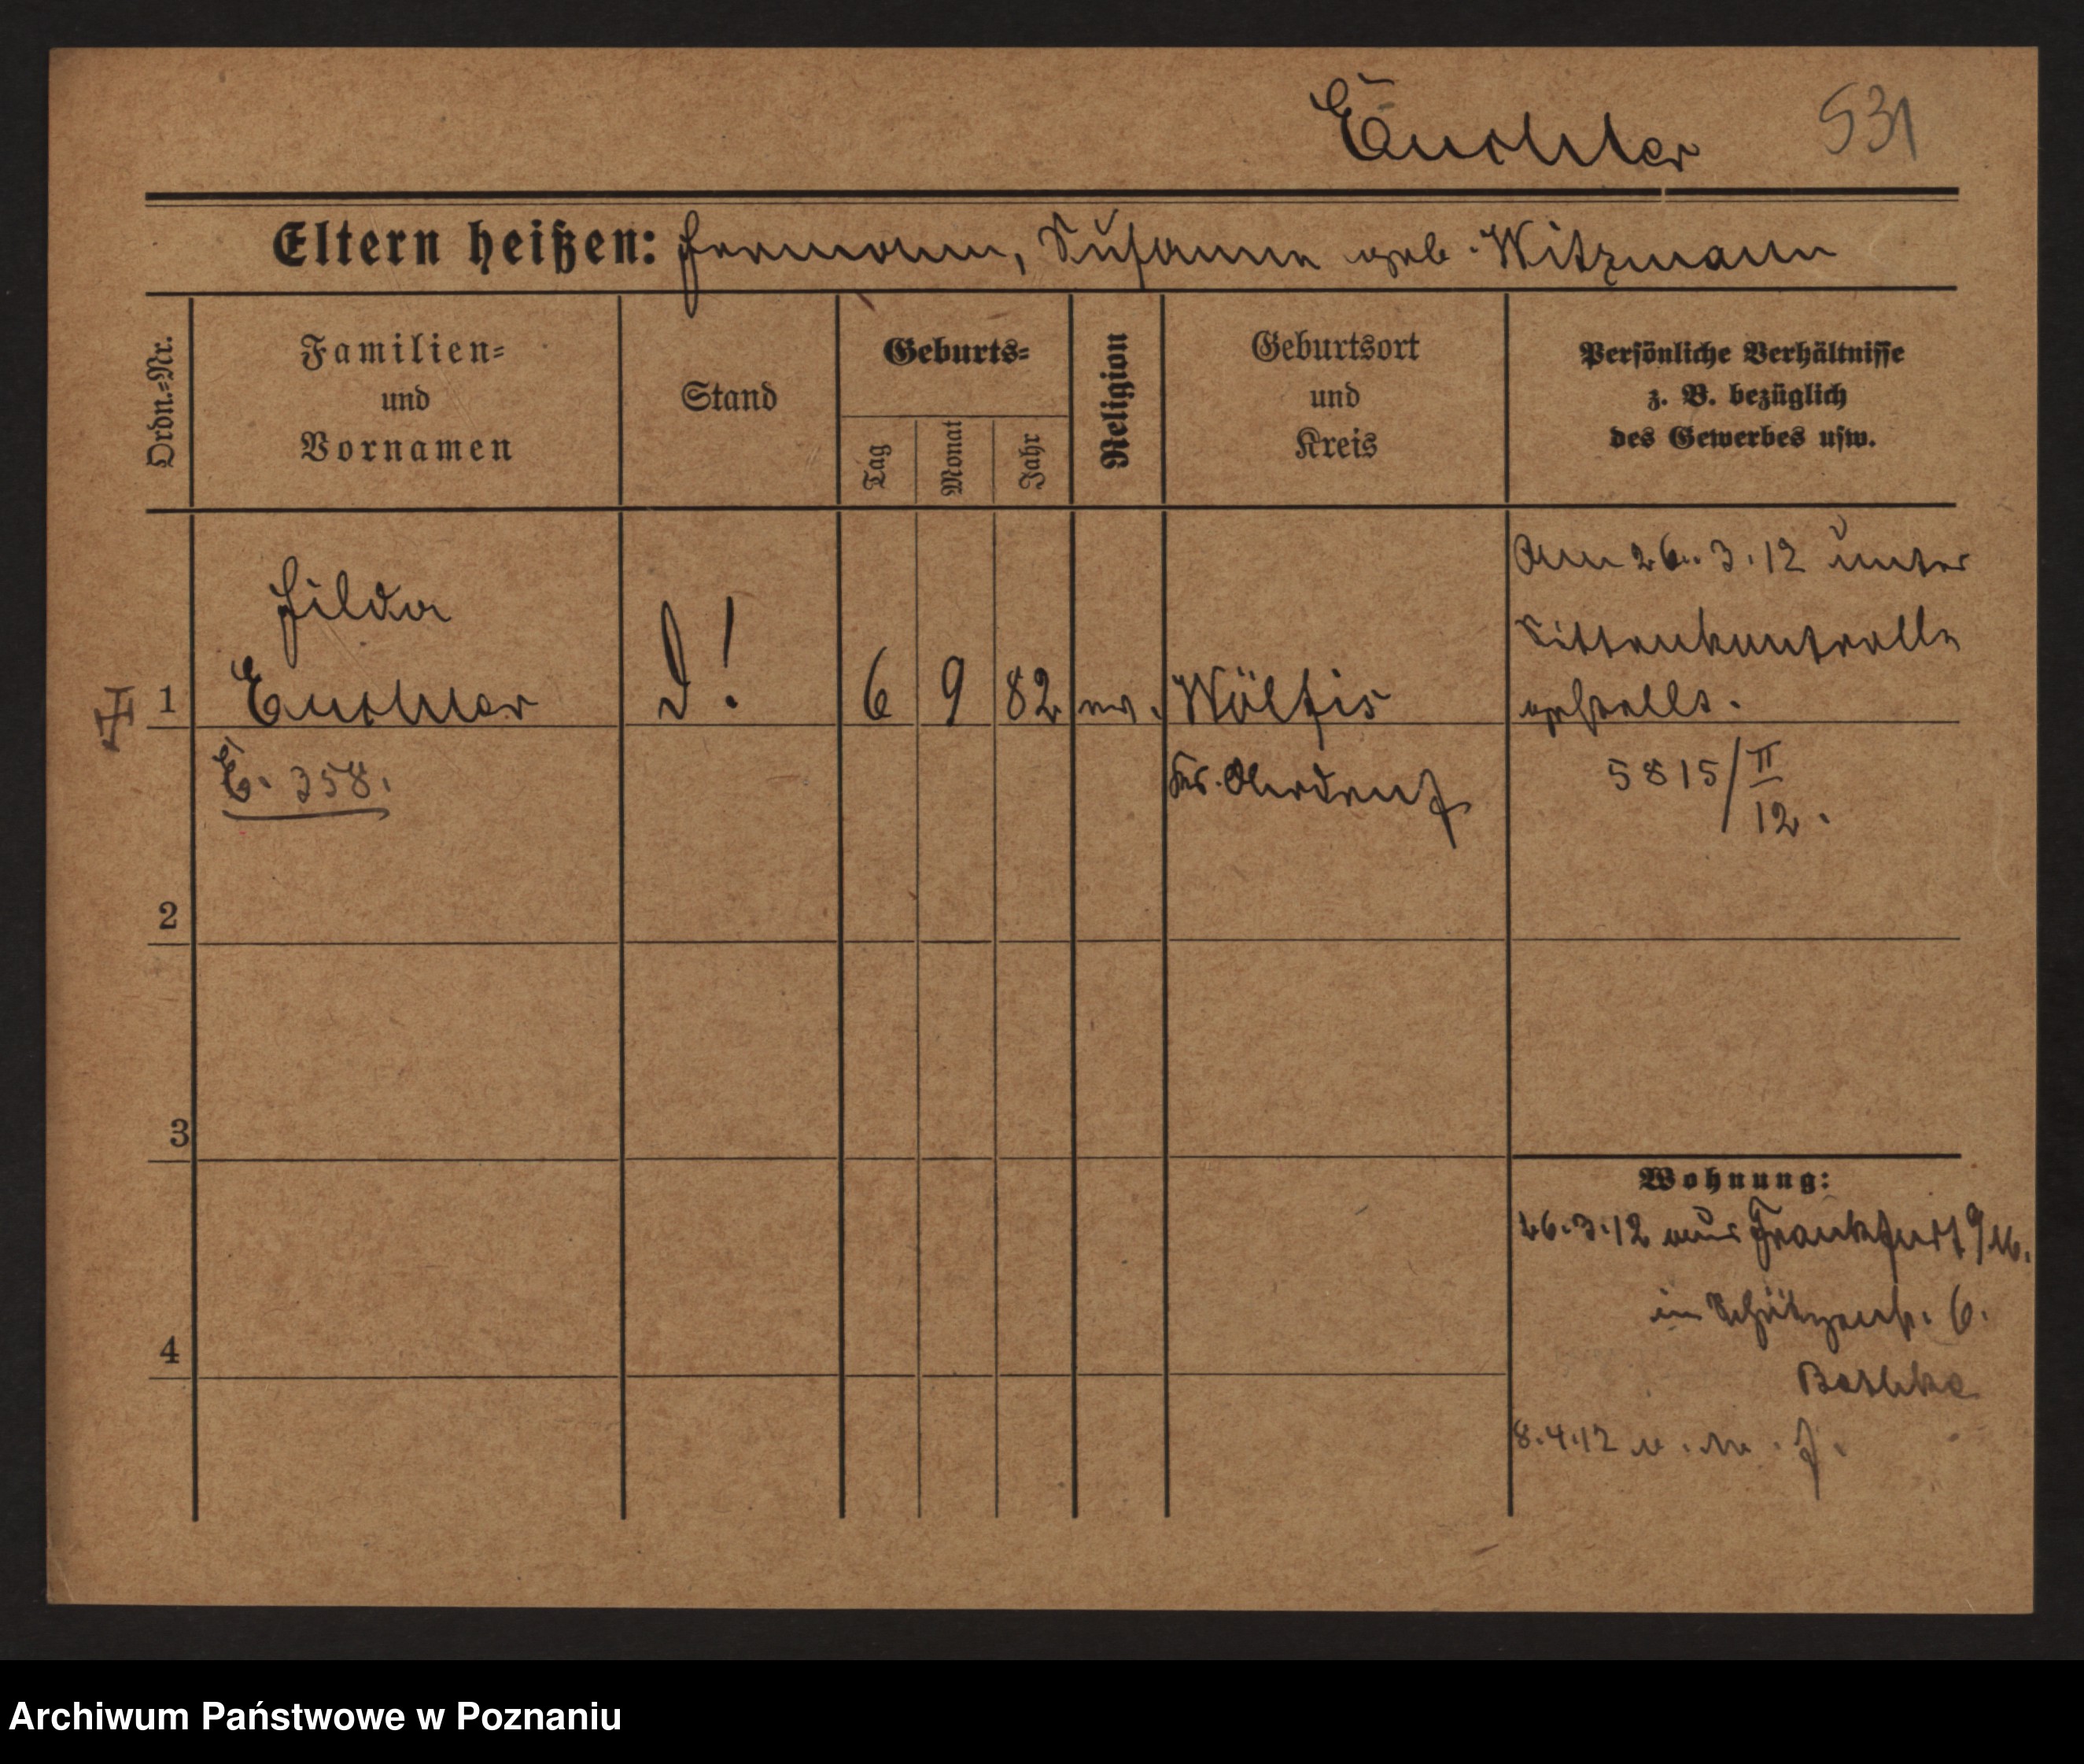 Euchler 531
Eltern heißen: Hermann, Susanna geb. Witzmann
Ordn.-Nr.
Familien-
und
Vornamen
Stand
Geburts-
Tag
Monat
Jahr
Religion
Geburtsort
und
Kreis
Persönliche Verhältnisse
z. B. bezüglich
des Gewerbes usw.
Am 26.3.12 unter
Sittenkontrolle
gestellt.
Hilda
1 Euchler D! 6 9 82 ev. Wölfis
E. 358.
Kr. Ohrdruf
5815/II
12.
2
3
4
Wohnung:
26.3.12 aus Frankfurt
in Schützenstr. 6.
8.4.12
Archiwum Państwowe w Poznaniu